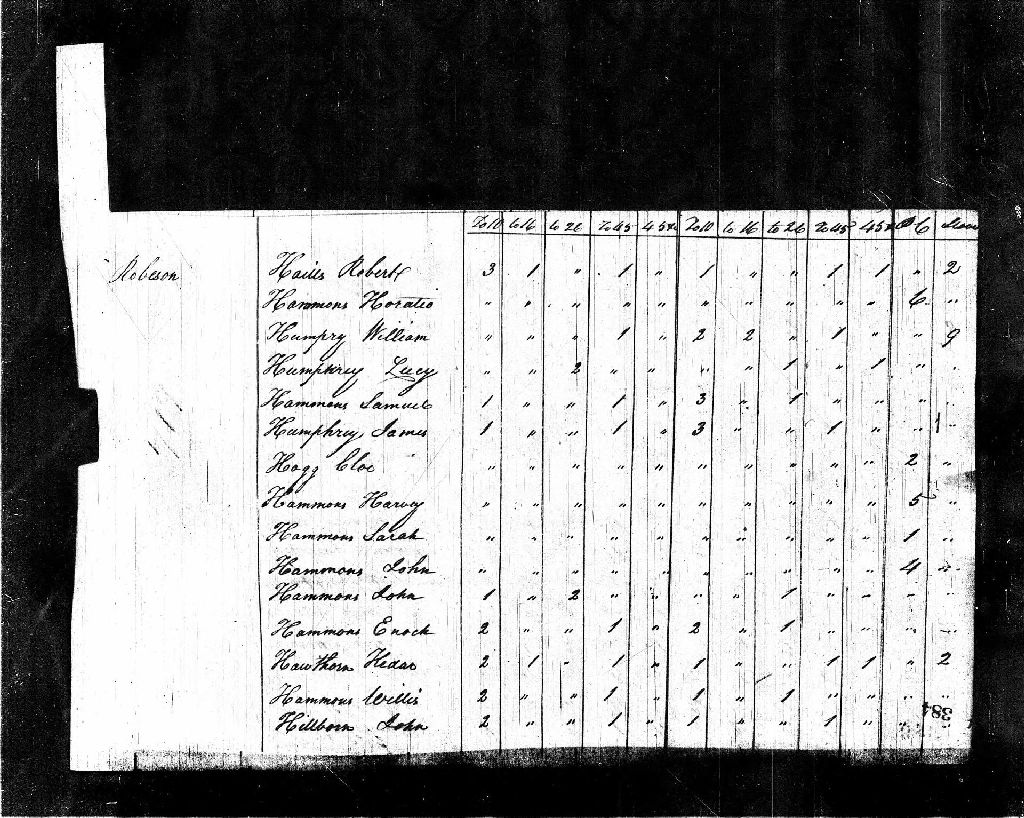 To 10 to 16 to 26 To 45 45 & To 10 to 16 to 26 To 45 45 & O F Slaves
Robeson Haills Robert 3 1 " 1 " 1 " " 1 1 " 2
Hammons Horatio " " " " " " " " " " 6 "
Humpry William " " " 1 " 2 2 " 1 " " 9
Humphrey Lucy " " 2 " " " " 1 " 1 " "
Hammons Samuel 1 " " 1 " 3 " 1 " " " "
Humphrey James 1 " " 1 " 3 " " 1 " " "
Hogg Cloe " " " " " " " " " " 2 "
Hammons Harvey " " " " " " " " " " 5 "
Hammons Sarah " " " " " " " " " " 1 "
Hammons John " " " " " " " " " " 4 "
Hammons John 1 " 2 " " " " 1 " " " "
Hammons Enoch 2 " " 1 " 2 " 1 " " " "
Hawthorn Kedar 2 1 " 1 " 1 " " 1 1 " 2
Hammons Willis 2 " " 1 " 1 " 1 " " " "
Hillborn John 2 " " 1 " 1 " " 1 " "
384